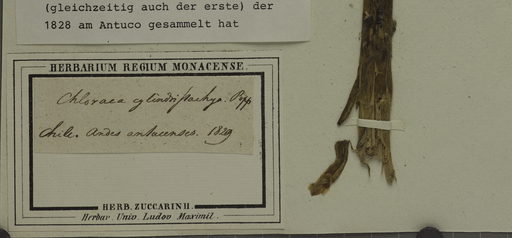 (gleichzeitig auch der erste) der
1828 am Antuco gesammelt hat
HERBARIUM REGIUM MONACENSE.
Chloraea cylindristachya. Pöpp
Chile. Andes antucenses. 1829
HERB. ZUCCARINII.
Herbar. Univ. Ludov Maximil.